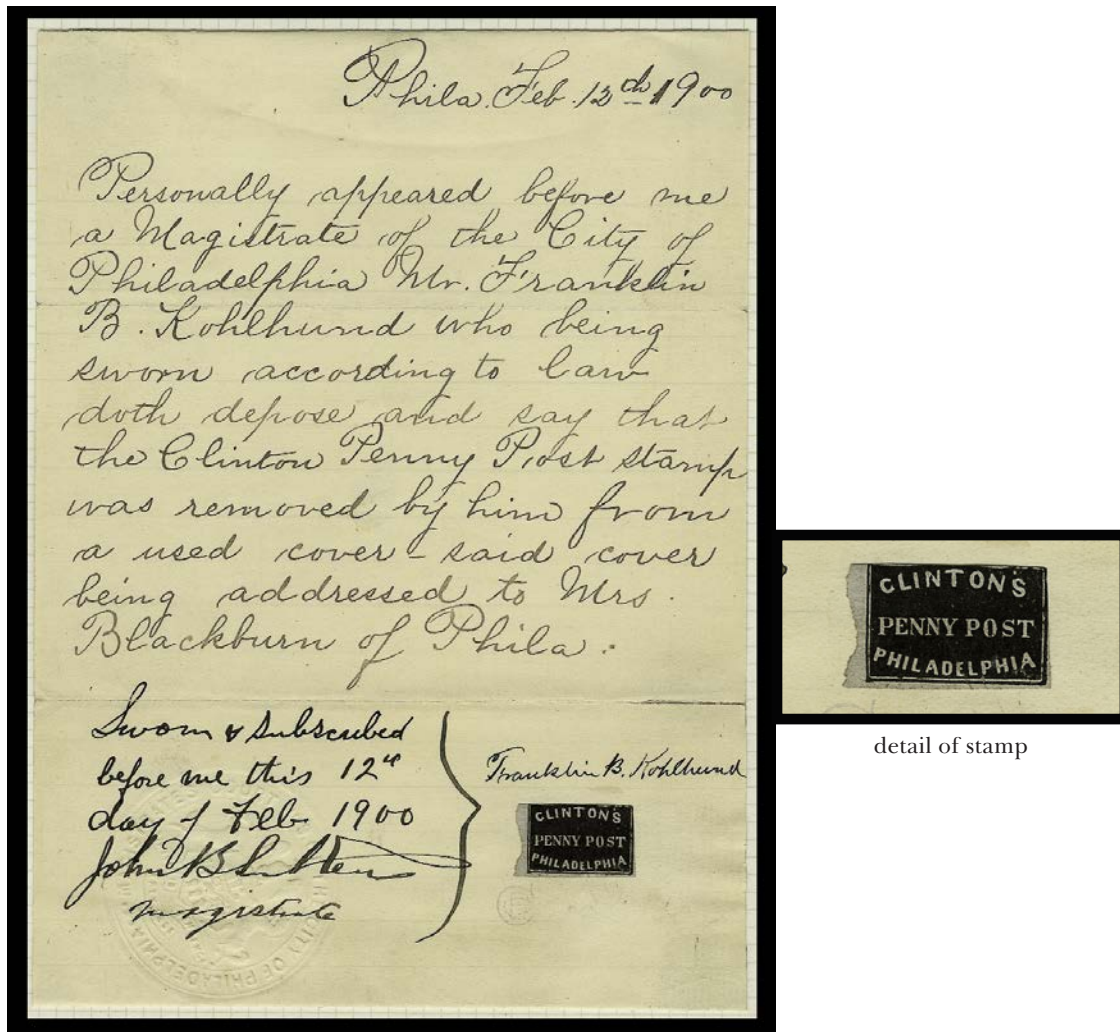 Phila. Feb. 12th 1900
Personally appeared before me
a Magistrate of the City of
Philadelphia Mr. Franklin
B. Kohlhund who being
sworn according to law
doth depose and say that
the Clinton Penny Post stamp
was removed by him from
a used cover – said cover
being addressed to Mrs.
Blackburn of Phila.
Sworn & subscribed
before me this 12th
day of Feb 1900
John B
magistrate
Franklin B. Kohlhund
CLINTON'S
PENNY POST
PHILADELPHIA
CITY OF PHILADELPHIA
CLINTON'S
PENNY POST
PHILADELPHIA
detail of stamp